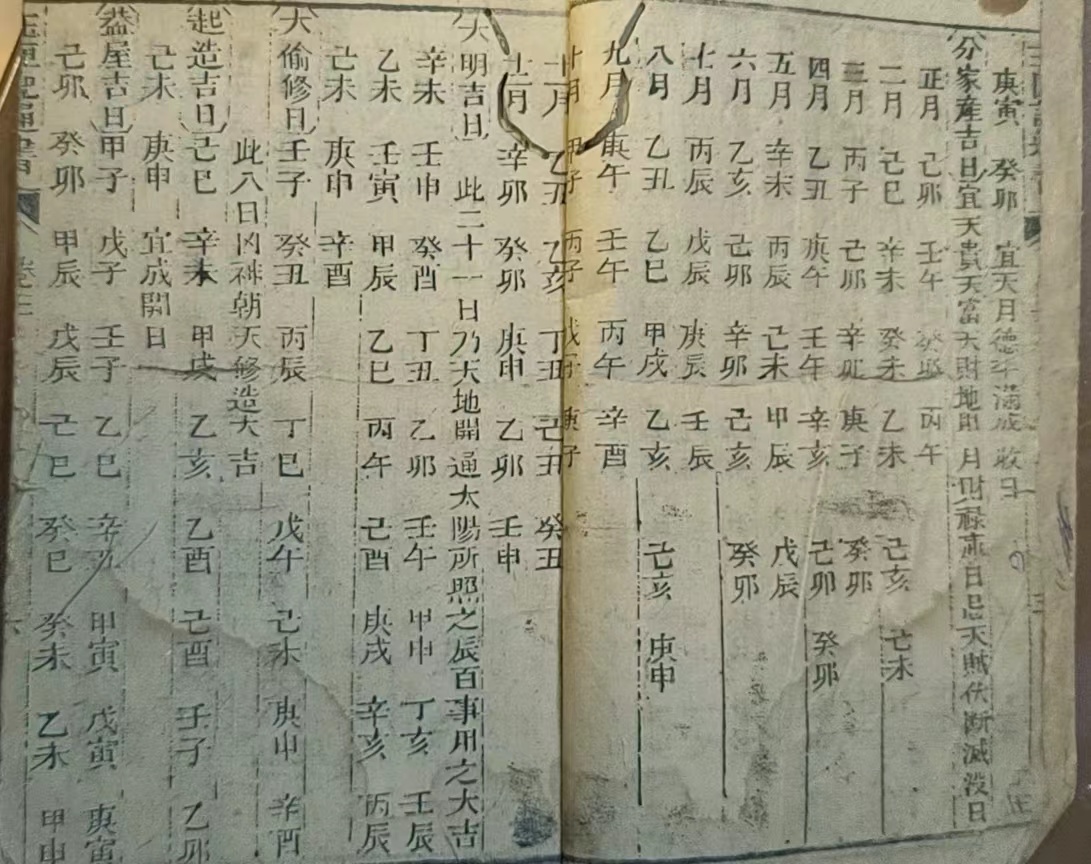 庚寅 癸卯 宜天月德平滿成收日
分家產吉日宜天貴天富天財地財月財祿庫日忌天賊伏斷滅沒日
正月 己卯 壬午 癸卯 丙午
二月 己巳 辛未 癸未 乙未 己亥 己未
三月 丙子 己卯 辛卯 庚子 癸卯
四月 乙丑 庚午 壬午 辛亥 己卯 癸卯
五月 辛未 丙辰 己未 甲辰 戊辰
六月 乙亥 己卯 辛卯 己亥 癸卯
七月 丙辰 戊辰 庚辰 壬辰
八月 乙丑 乙巳 甲戌 乙亥 己亥 庚申
九月 庚午 壬午 丙午 辛酉
十月 甲子 丙子 戊子 庚子
十一月 乙丑 乙亥 丁丑 己丑 癸丑
十二月 辛卯 癸卯 庚申 乙卯 壬申
大明吉日 此二十一日乃天地開通太陽所照之辰百事用之大吉
辛未 壬申 癸酉 丁丑 乙卯 壬午 甲申 丁亥 壬辰
乙未 壬寅 甲辰 乙巳 丙午 己酉 庚戌 辛亥 丙辰
己未 庚申 辛酉
大偷修日 壬子 癸丑 丙辰 丁巳 戊午 己未 庚申 辛酉
此八日凶神朝天修造大吉
起造吉日 己巳 辛未 甲戌 乙亥 乙酉 己酉 壬子 乙卯
己未 庚申 宜成開日
蓋屋吉日 甲子 戊子 壬子 乙巳 辛丑 甲寅 戊寅 庚寅
己卯 癸卯 甲辰 戊辰 己巳 癸巳 癸未 乙未 甲申
卷三 六